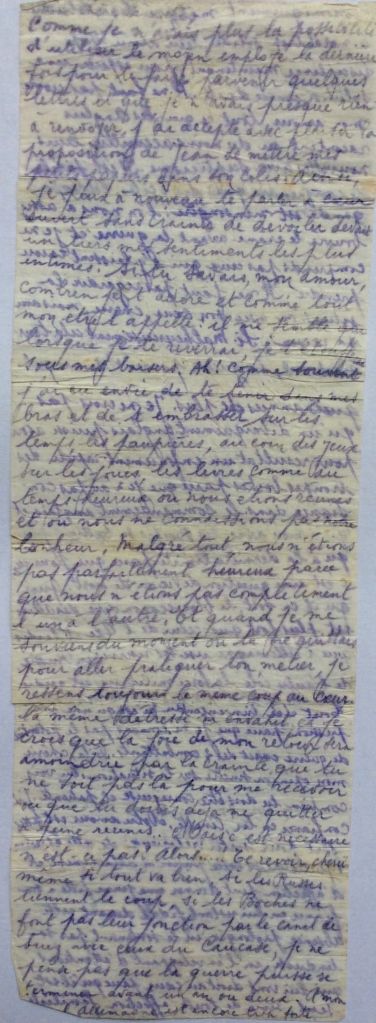 Comme je n'avais plus la possibilité
d'utiliser le moyen employé la dernière
fois pour te faire parvenir quelques
lettres et que je n'avais presque rien
à renvoyer, j'ai accepté avec plaisir la
proposition de Jean de mettre mes
dans son colis. Ainsi,
je peux à nouveau te parler à cœur
ouvert sans crainte de dévoiler devant
un tiers mes sentiments les plus
intimes. Si tu savais, mon amour,
combien je t'adore et comme tout
mon être t'appelle. il me semble que
lorsque je te reverrai, je t'
sous mes baisers. Ah! Comme souvent
j'ai eu envie de te tenir dans mes
bras et de t'embrasser sur les
tempes les paupières, au coin des yeux
sur les joues, les lèvres comme au
temps heureux où nous étions réunis
et où nous ne connaissions pas notre
bonheur. Malgré tout, nous n'étions
pas parfaitement heureux parce
que nous n'étions pas complètement
l'un à l'autre. Et quand je me
souviens du moment où tu me quittais
pour aller pratiquer ton métier, je
ressens toujours le même coup au cœur
la même détresse m'envahit et je
crois que la joie de mon retour sera
amoindrie par la crainte que tu
ne sois pas là pour me recevoir
ou que tu doives déjà me quitter
à peine réunis... Mais c'est nécessaire
n'est-ce pas? Alors..... Te revoir, chérie
même si tout va bien, si les Russes
tiennent le coup, si les Boches ne
font pas leur jonction par le canal de
Suez avec ceux du Caucase, je ne
pense pas que la guerre puisse se
terminer avant un an ou deux. A mon
l'Allemagne est encore très forte